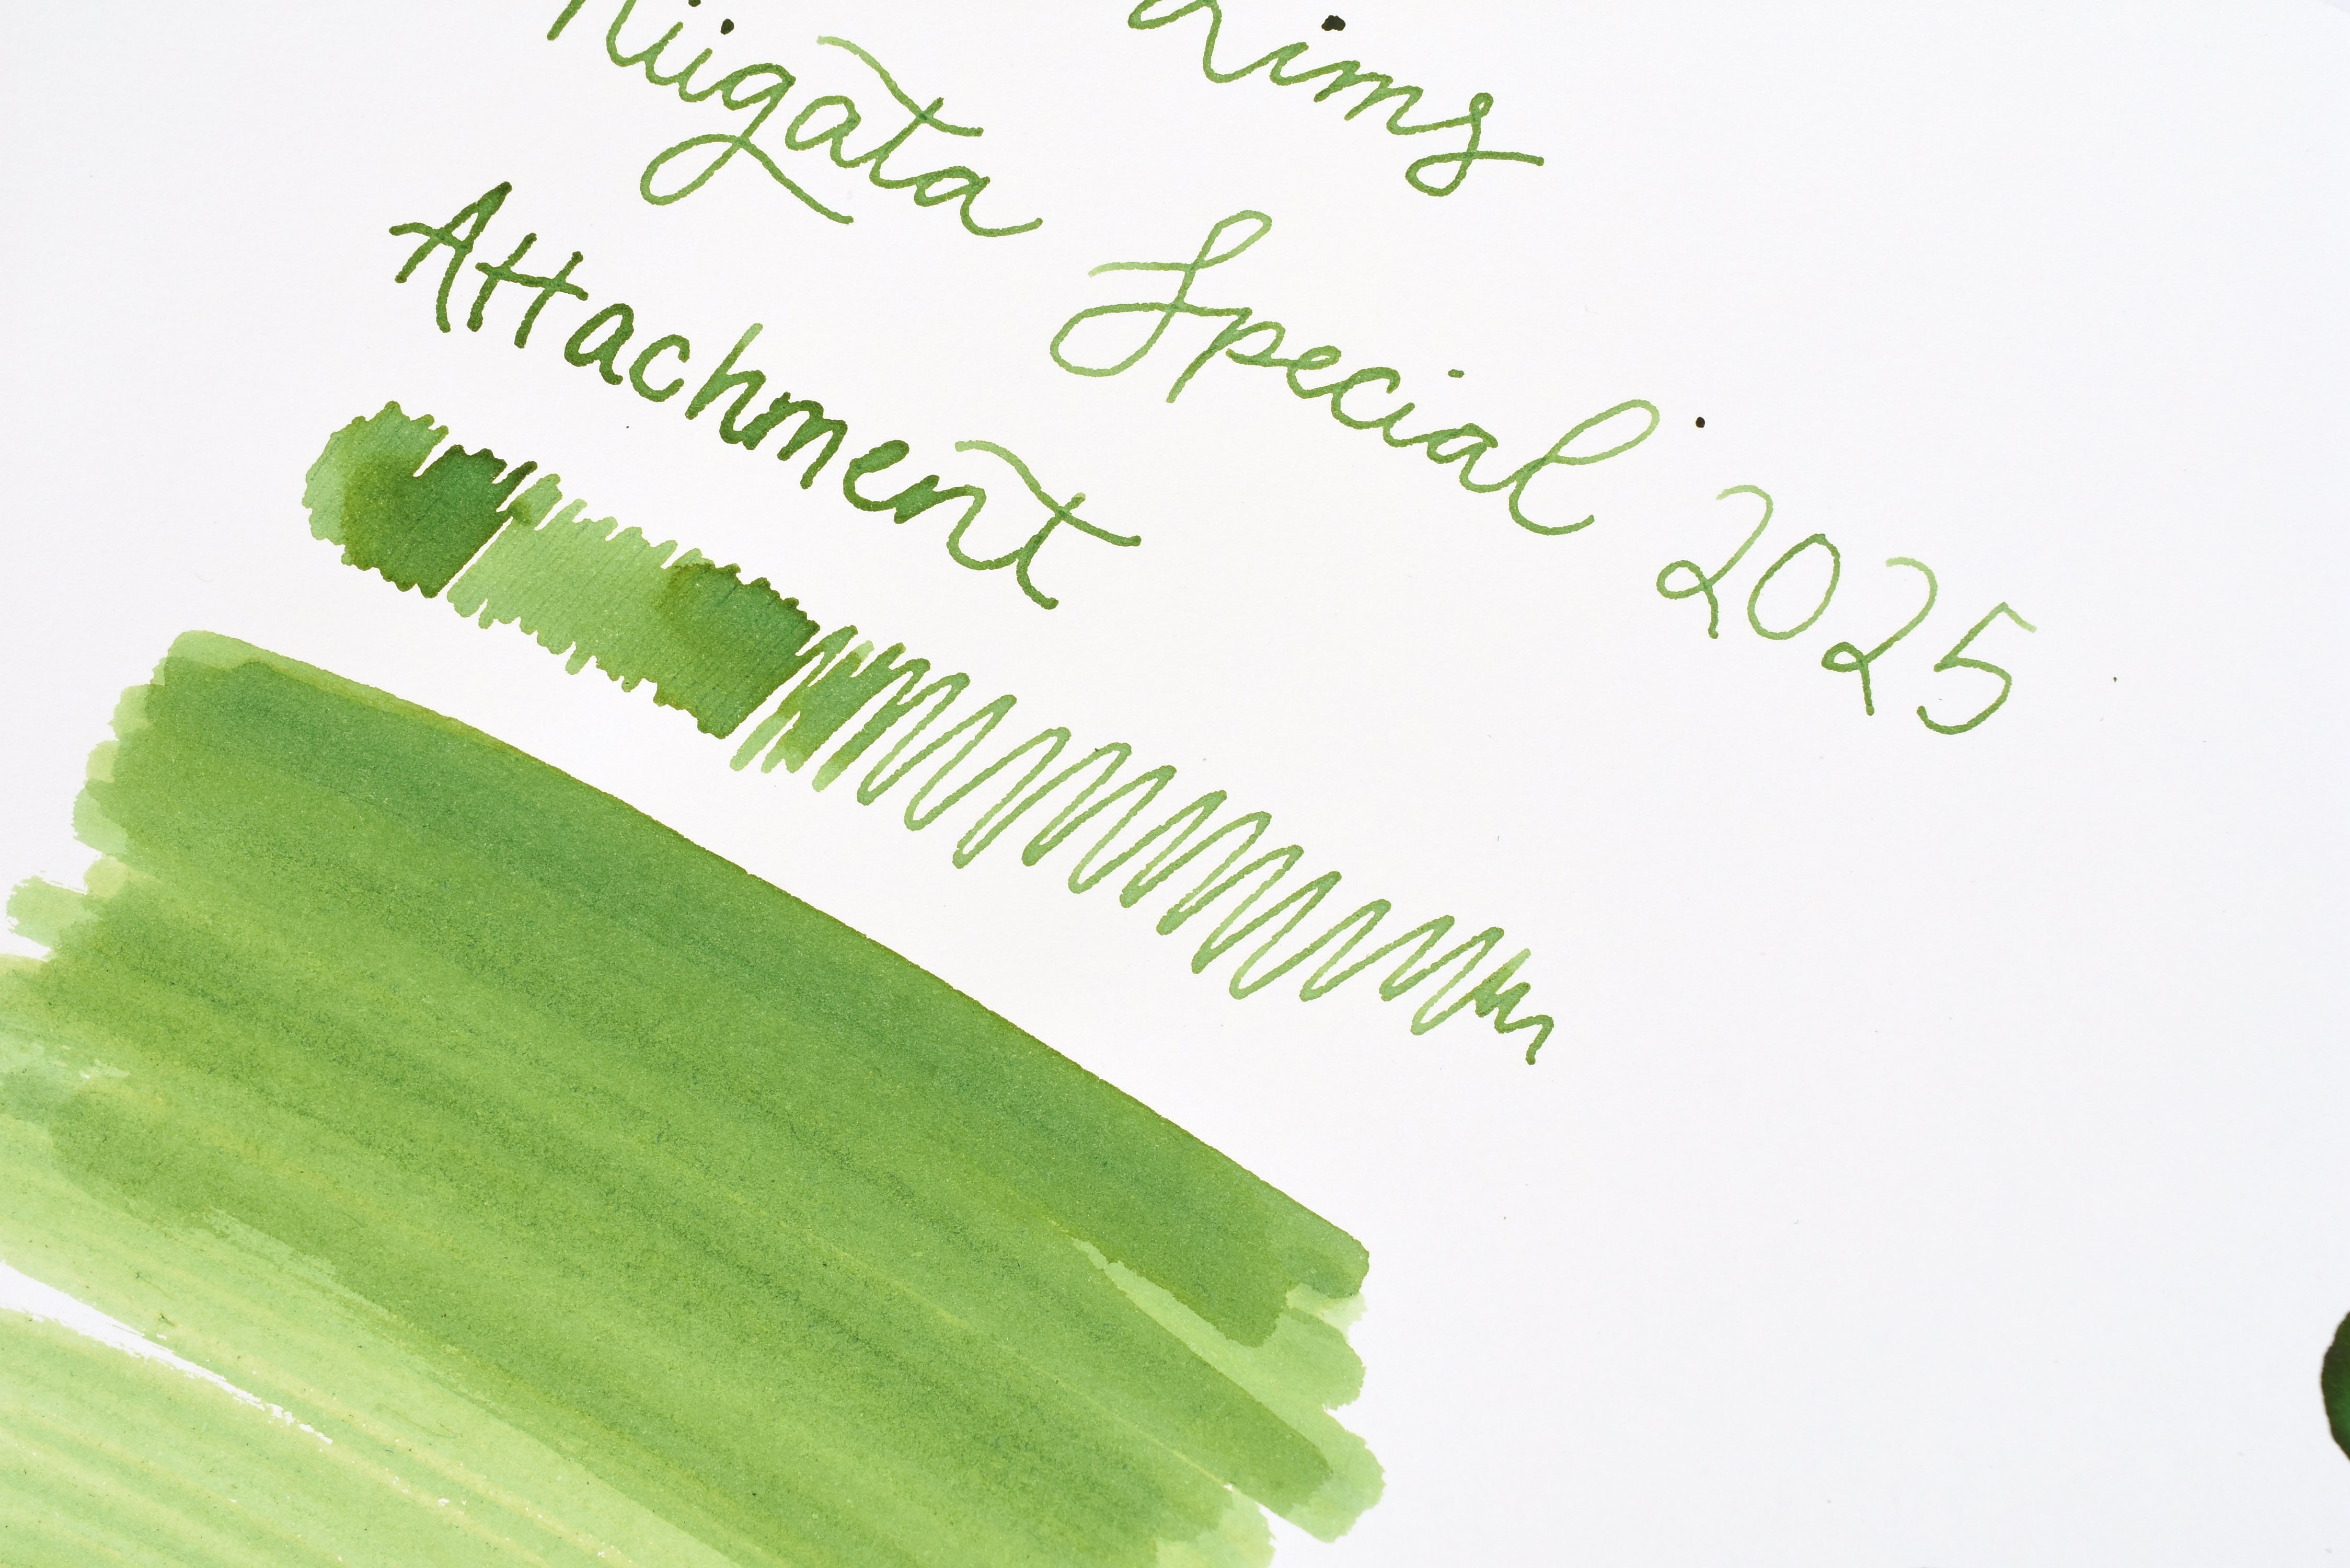 Lims
Niigata Special 2025
Attachment